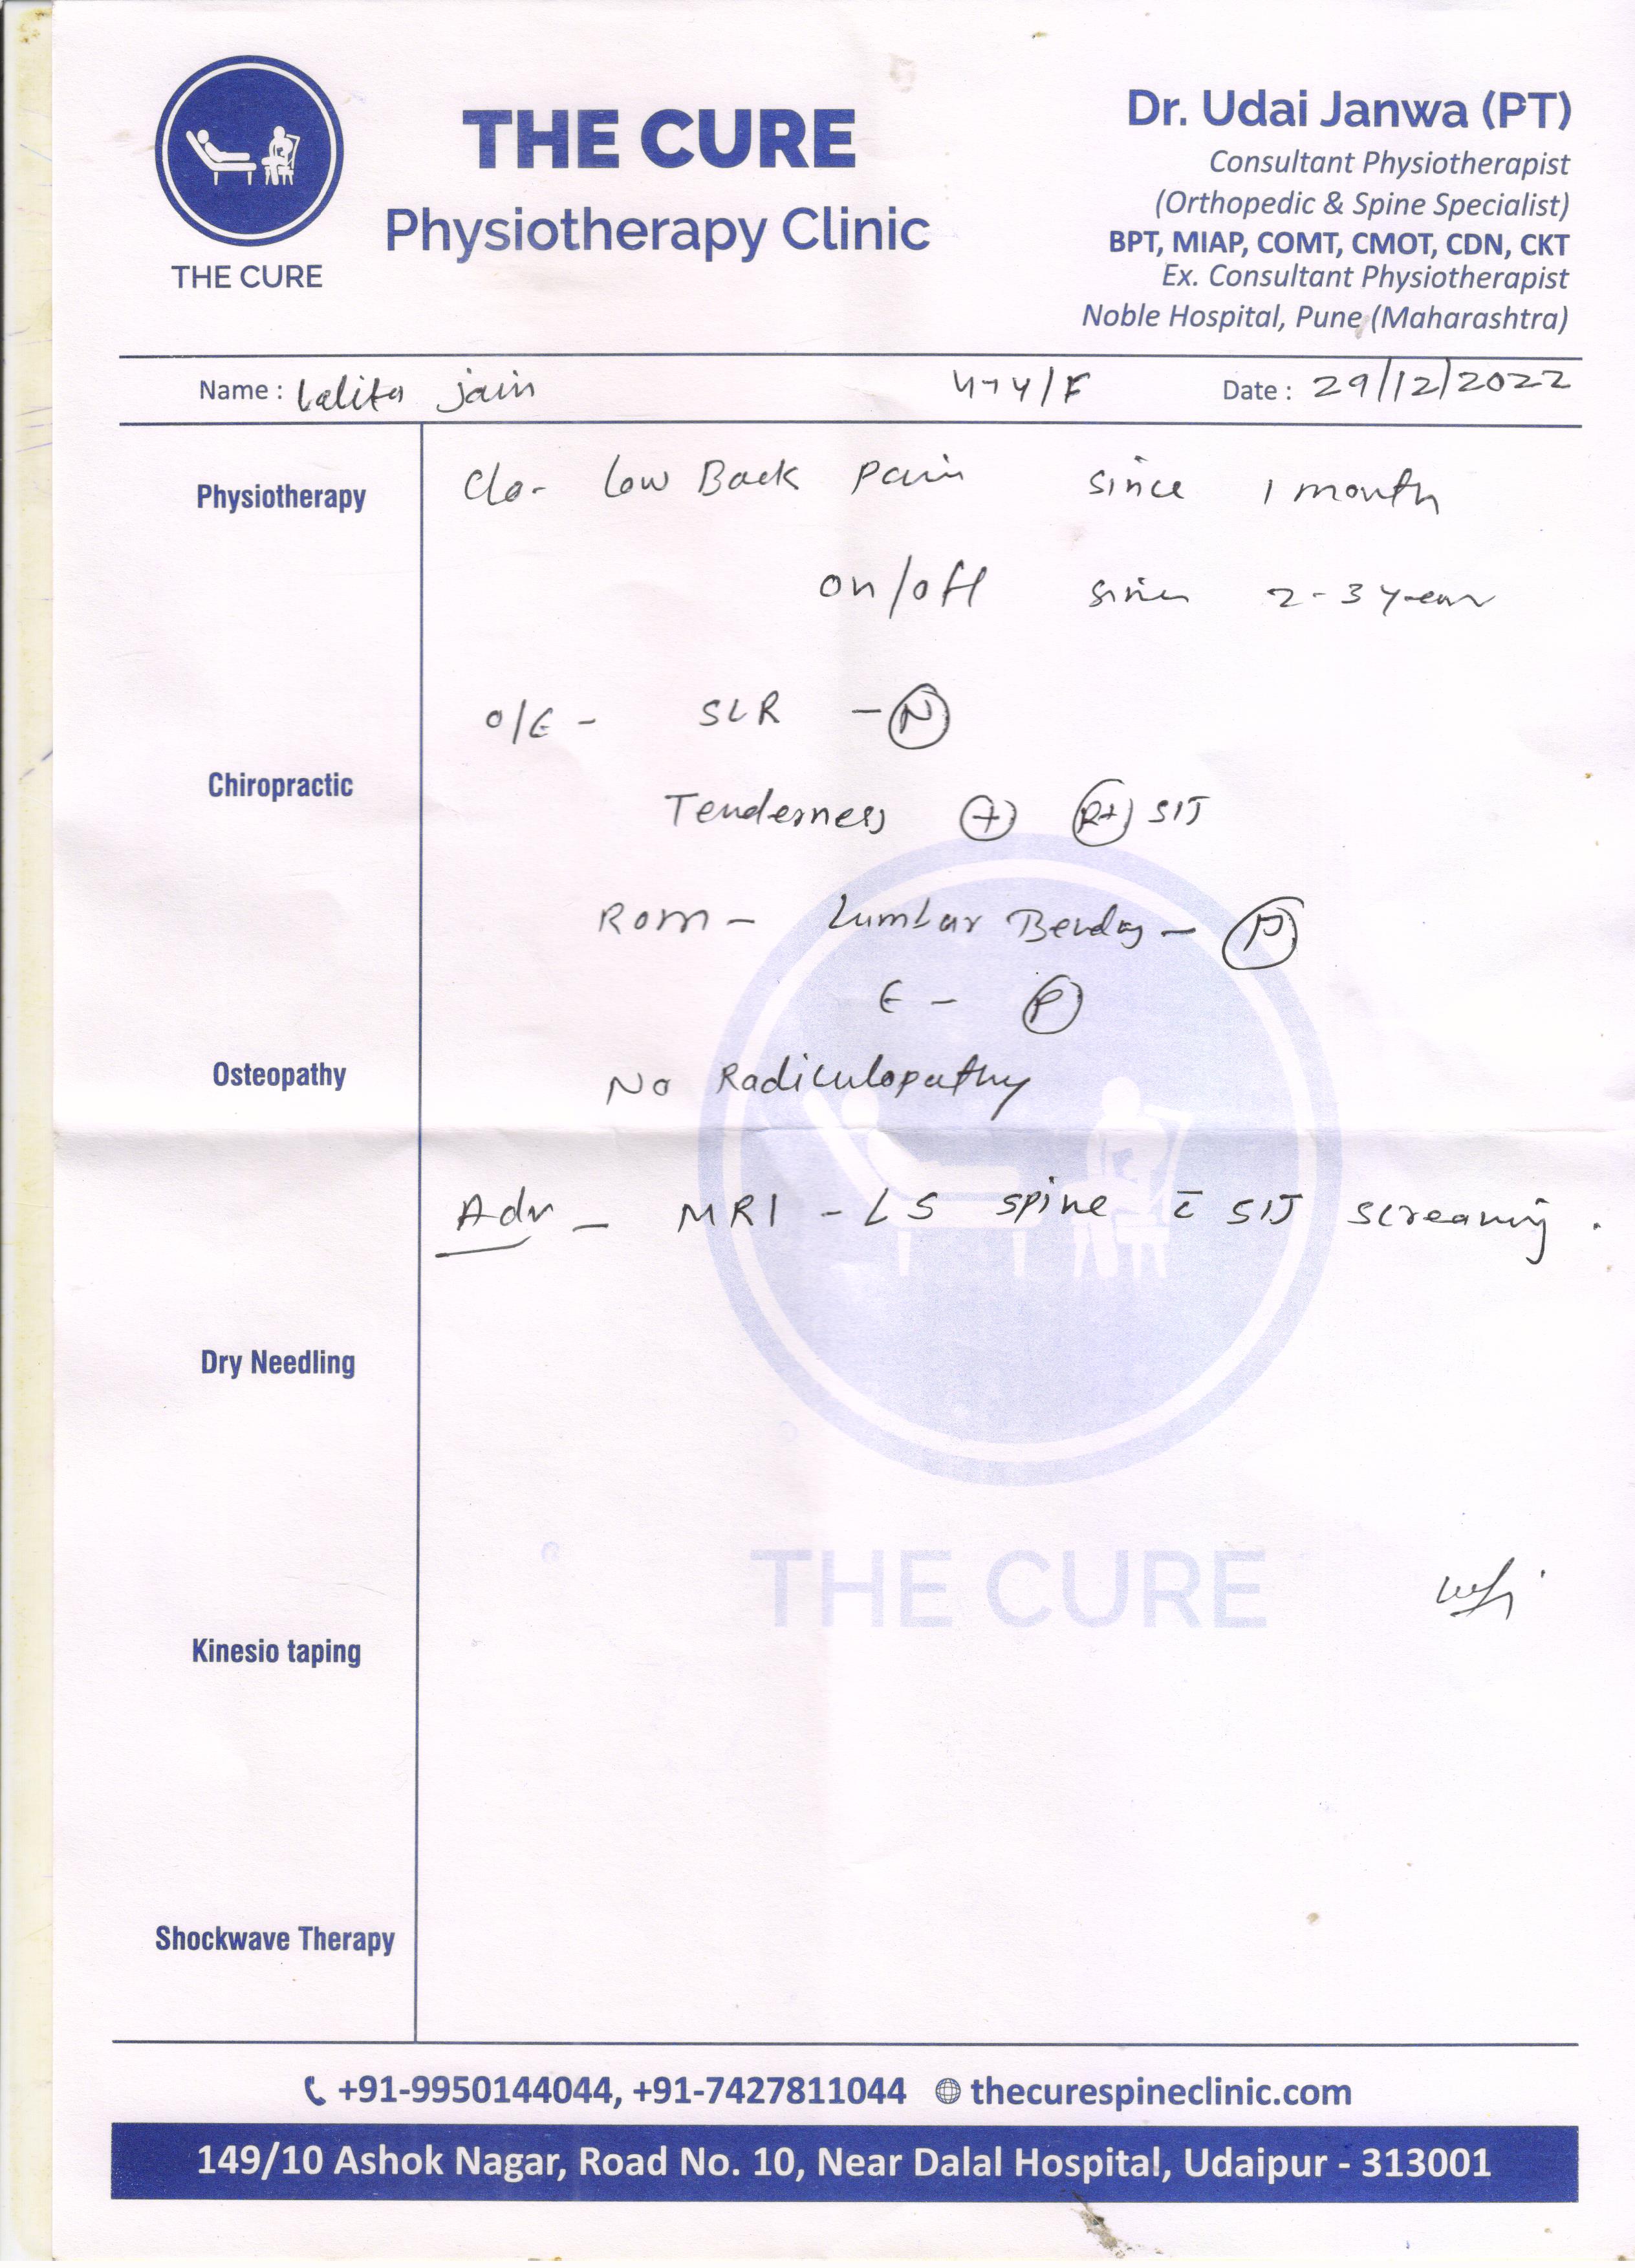 THE CURE
Physiotherapy Clinic
THE CURE
Dr. Udai Janwa (PT)
Consultant Physiotherapist
(Orthopedic & Spine Specialist)
BPT, MIAP, COMT, CMOT, CDN, CKT
Ex. Consultant Physiotherapist
Noble Hospital, Pune (Maharashtra)
Name : Lalita jain /F Date : 29/12/2022
Physiotherapy
C/o- Low Back pain since 1 month
on/off since 2-3 year
O/E - SLR - N
Chiropractic
Tenderness + Rt SIJ
ROM - Lumbar Bending -
E - P
Osteopathy
No Radiculopathy
Adv - MRI - LS spine c̄ SIJ screaning.
Dry Needling
THE CURE
Kinesio taping
Shockwave Therapy
+91-9950144044, +91-7427811044 thecurespineclinic.com
149/10 Ashok Nagar, Road No. 10, Near Dalal Hospital, Udaipur - 313001